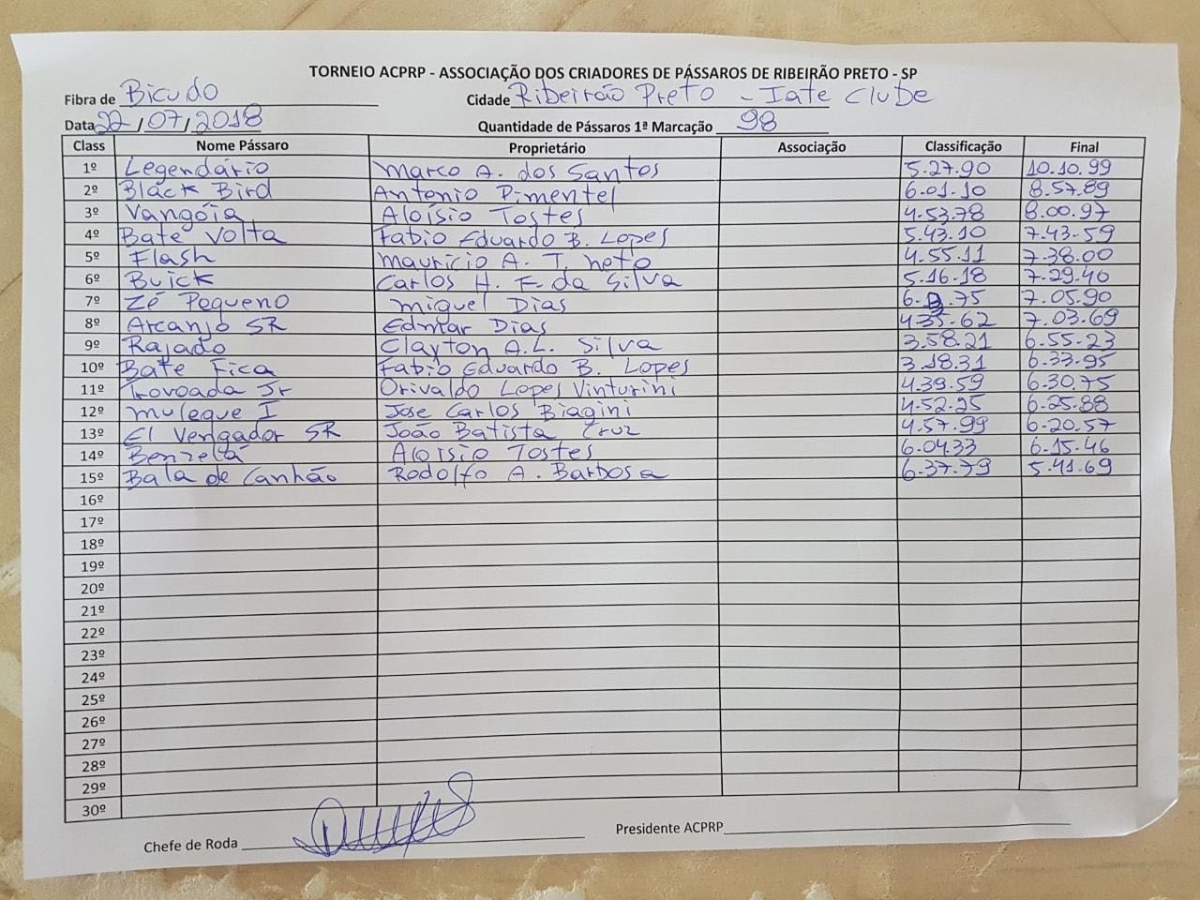 TORNEIO ACPRP - ASSOCIAÇÃO DOS CRIADORES DE PÁSSAROS DE RIBEIRÃO PRETO - SP
Fibra de Bicudo Cidade Ribeirão Preto - Iate Clube
Data 22/07/2018 Quantidade de Pássaros 1ª Marcação 98
Class Nome Pássaro Proprietário Associação Classificação Final
1º Legendário Marco A. dos Santos 5.27.90 10.10.99
2º Black Bird Antonio Pimentel 6.01.10 8.57.89
3º Vangóia Aloísio Tostes 4.53.78 8.00.97
4º Bate Volta Fabio Eduardo B. Lopes 5.43.10 7.43.59
5º Flash Mauricio A. T. Neto 4.55.11 7.38.00
6º Buick Carlos H. F. da Silva 5.16.18 7.29.40
7º Zé Pequeno Miguel Dias 7.05.90
8º Arcanjo SR Edmar Dias 4.35.62 7.03.69
9º Rajado Clayton A.L. Silva 3.58.21 6.55.23
10º Bate Fica Fabio Eduardo B. Lopes 3.18.31 6.33.95
11º Trovoada Jr Orivaldo Lopes Vinturini 4.39.59 6.30.75
12º Muleque I Jose Carlos Biagini 4.52.25 6.25.88
13º El Vengador SR João Batista Cruz 4.57.99 6.20.57
14º Aloisio Tostes 6.04.33 6.15.46
15º Bala de Canhão Rodolfo A. Barbosa 6.37.79 5.41.69
16º
17º
18º
19º
20º
21º
22º
23º
24º
25º
26º
27º
28º
29º
30º
Chefe de Roda Presidente ACPRP